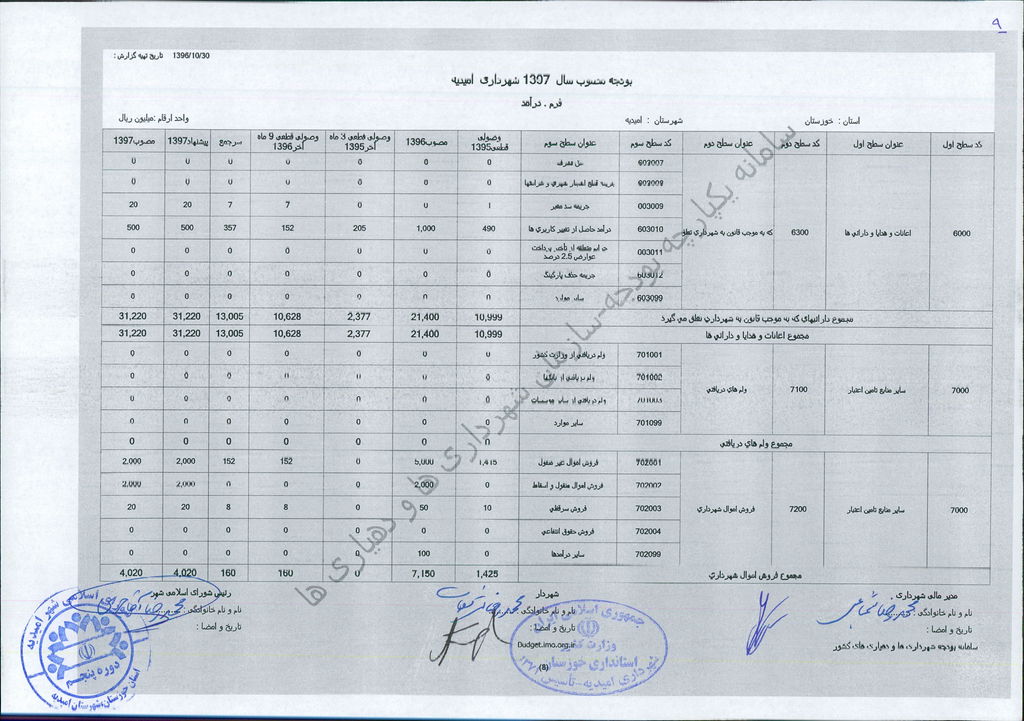 ۹
تاریخ تهیه گزارش : 1396/10/30
بودجه مصوب سال 1397 شهرداری امیدیه
فرم . درآمد
استان : خوزستان شهرستان : امیدیه واحد ارقام :میلیون ریال
کد سطح اول عنوان سطح اول کد سطح دوم عنوان سطح دوم کد سطح سوم عنوان سطح سوم وصولی قطعی1395 مصوب1396 وصولی قطعی 3 ماه آخر1395 وصولی قطعی 9 ماه اخر1396 سرجمع پیشنهاد1397 مصوب1397
0 0 0 0 0 0 0
0 0 0 0 0 0 0
جریمه سد معبر 1 0 0 7 7 20 20
6000 اعانات و هدایا و دارائی ها 6300 که به موجب قانون به شهرداري تعلق 603010 درآمد حاصل از تغییر کاربري ها 490 1,000 205 152 357 500 500
عوارض 2.5 درصد 0 0 0 0 0 0 0
جریمه حذف پارکینگ 0 0 0 0 0 0 0
603099 سایر موارد 0 0 0 0 0 0 0
مجموع دارائیهاي که به موجب قانون به شهرداري تعلق مي گیرد 10,999 21,400 2,377 10,628 13,005 31,220 31,220
مجموع اعانات و هدایا و دارائي ها 10,999 21,400 2,377 10,628 13,005 31,220 31,220
701001 وام دریافتي از وزارت کشور 0 0 0 0 0 0 0
701002 وام دریافتي از بانکها 0 0 0 0 0 0 0
7000 سایر منابع تامین اعتبار 7100 وام هاي دریافتي 701003 وام دریافتي از سایر موسسات 0 0 0 0 0 0 0
701099 سایر موارد 0 0 0 0 0 0 0
مجموع وام هاي دریافتي 0 0 0 0 0 0 0
702001 فروش اموال غیر منقول 1,415 5,000 0 152 152 2,000 2,000
702002 فروش اموال منقول و اسقاط 0 2,000 0 0 0 2,000 2,000
7000 سایر منابع تامین اعتبار 7200 فروش اموال شهرداري 702003 فروش سرقفلي 10 50 0 8 8 20 20
702004 فروش حقوق انتفاعي 0 0 0 0 0 0 0
702099 سایر درآمدها 0 100 0 0 0 0 0
مجموع فروش اموال شهرداري 1,425 7,150 0 160 160 4,020 4,020
مدیر مالی شهرداری . شهردار رئیس شورای اسلامی شهر
نام و نام خانوادگی : نام و نام خانوادگی : نام و نام خانوادگی :
تاریخ و امضا : تاریخ و امضا : تاریخ و امضا :
سامانه بودجه شهرداری ها و دهیاری های کشور Budget.imo.org.ir
(8)
سامانه یکپارچه بودجه-سازمان شهرداری ها و دهیاری ها
جمهوری اسلامی ایران
وزارت کشور
استانداری خوزستان
شهرداری امیدیه-تأسیس
اسلامی شهر امیدیه
دوره پنجم
استان خوزستان،شهرستان امیدیه